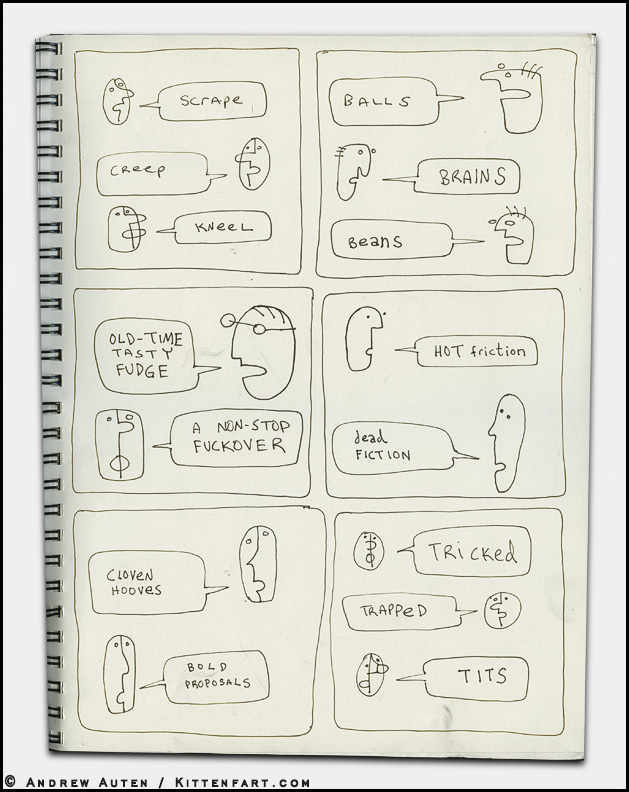 SCRAPE
CREEP
KNEEL
BALLS
BRAINS
Beans
OLD-TIME
TASTY
FUDGE
A NON-STOP
FUCKOVER
HOT friction
dead
FICTION
CLOVEN
HOOVES
BOLD
PROPOSALS
TRICKed
TRAPPeD
TITS
© ANDREW AUTEN / KITTENFART.COM